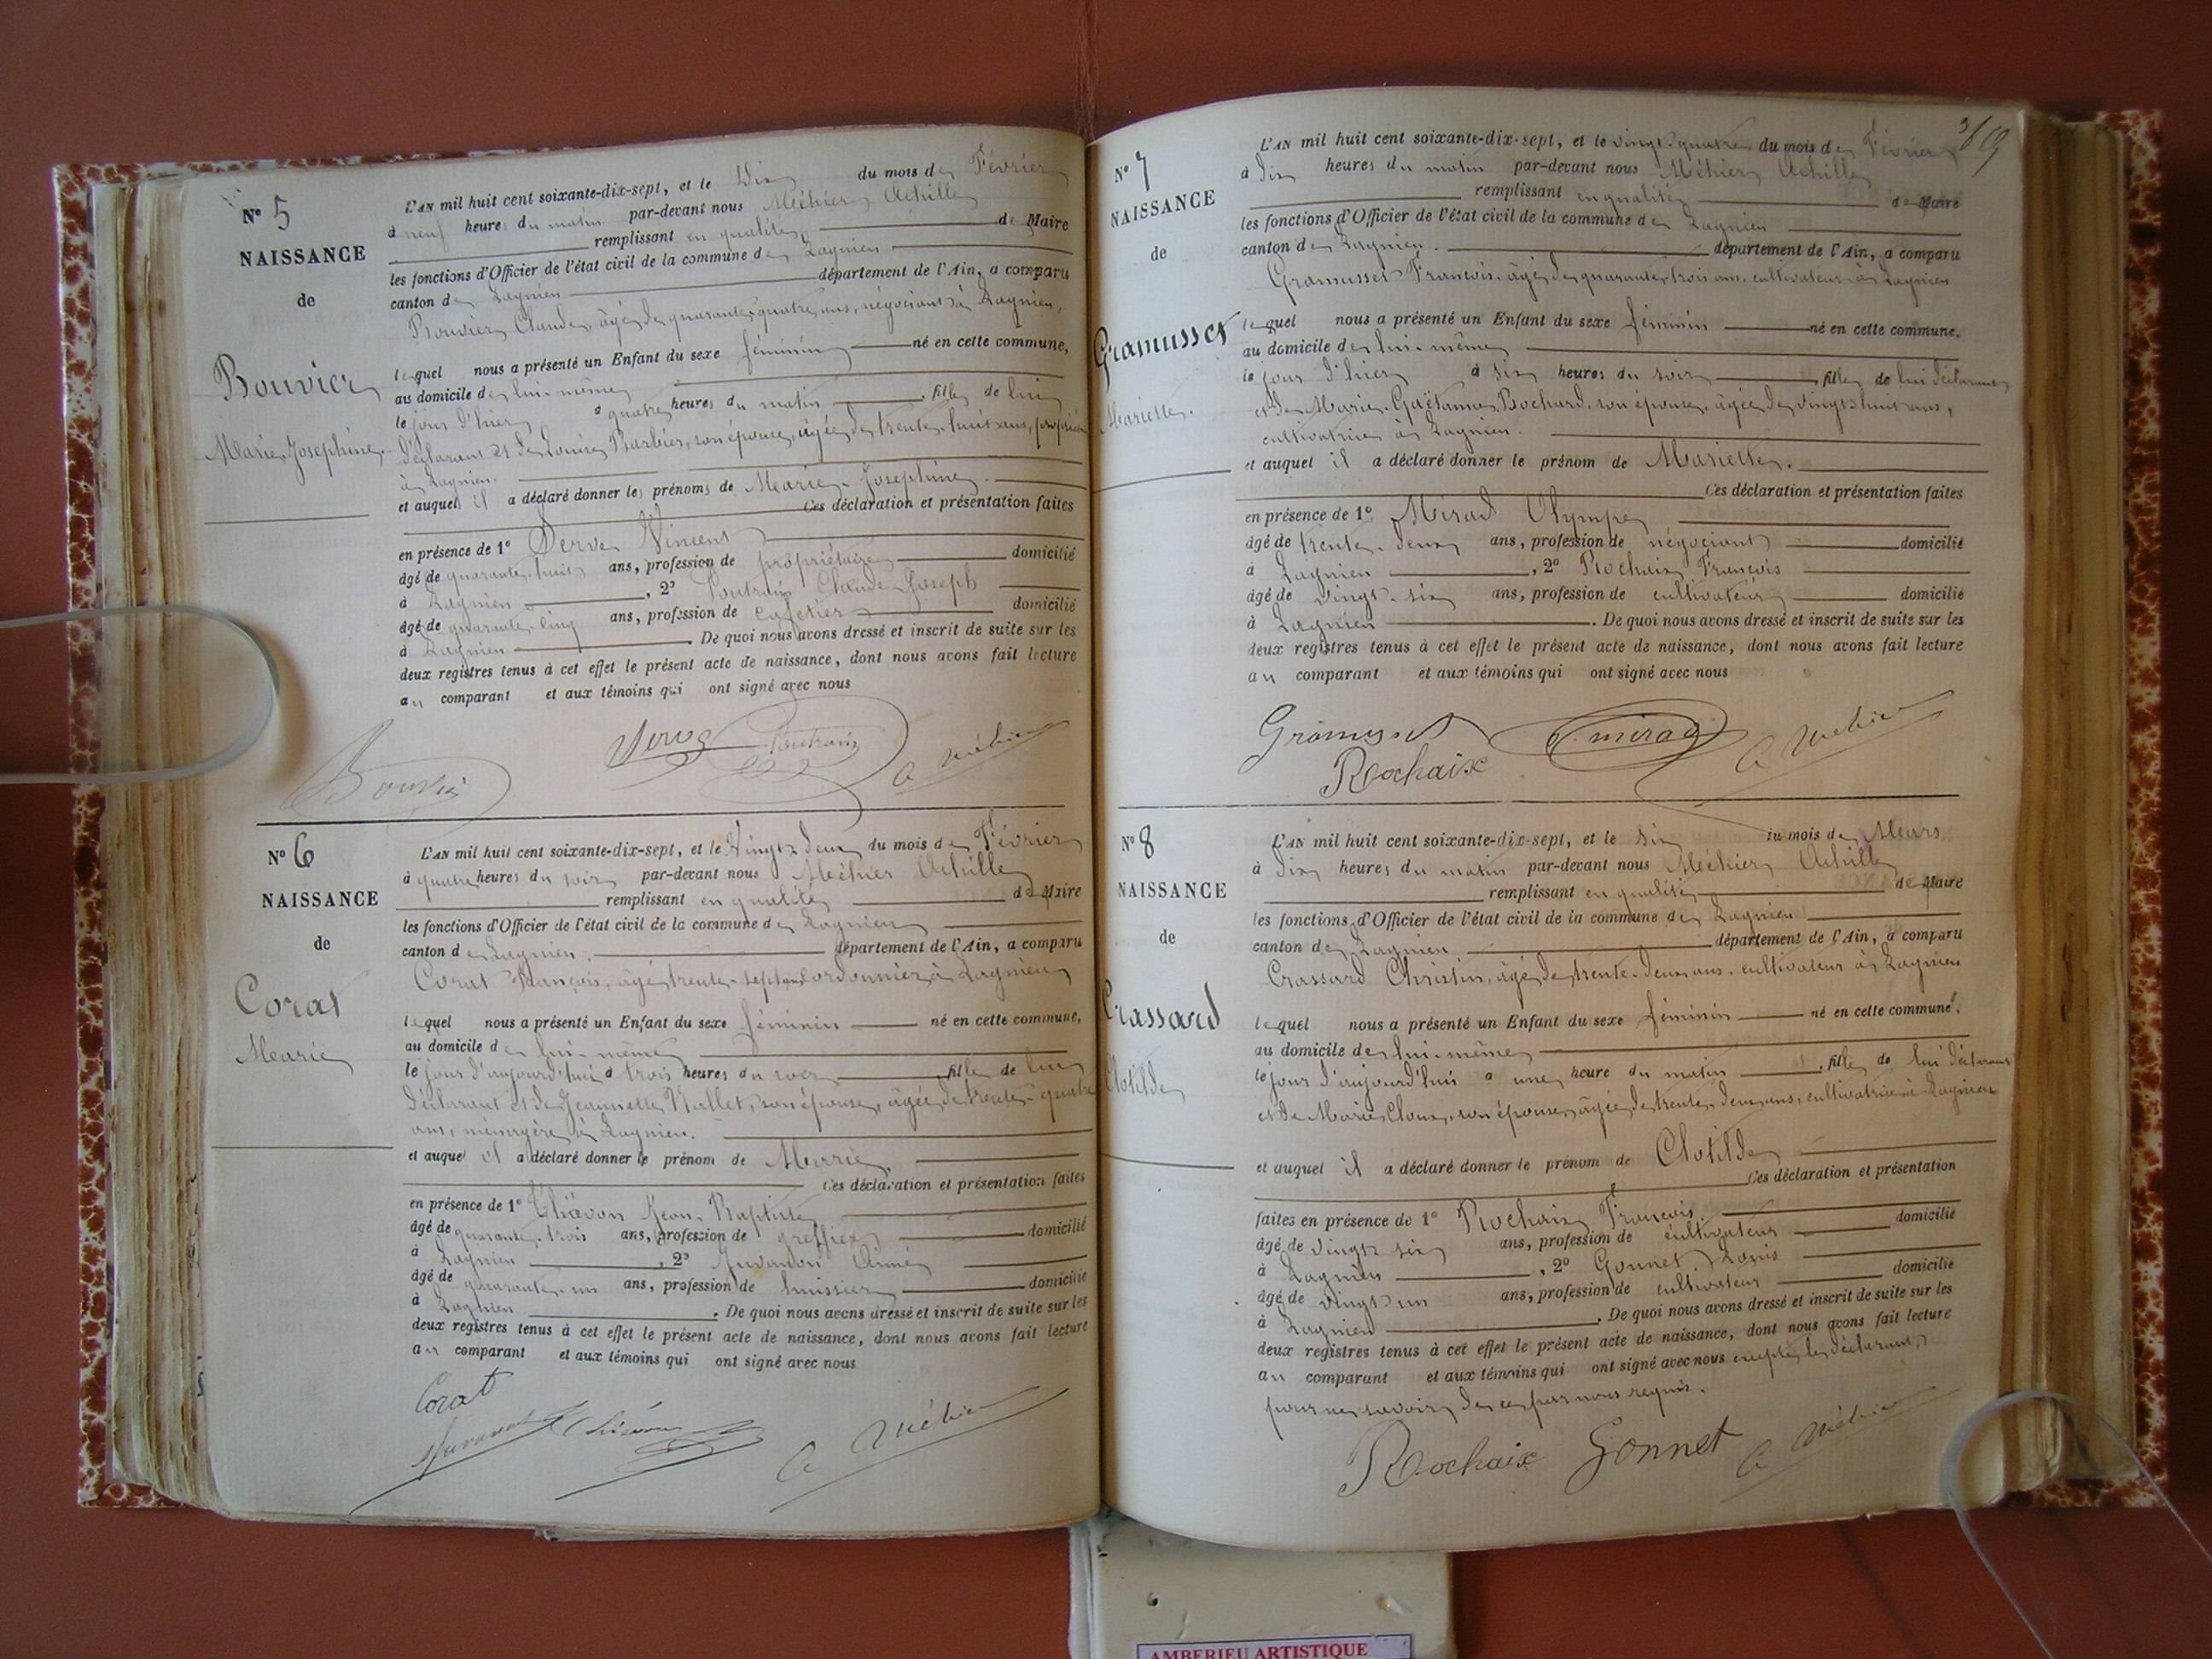 N° 5
NAISSANCE
de
Bouvier
Marie Joséphine
L'AN mil huit cent soixante-dix-sept, et le Dix du mois de Février
à neuf heures du matin par-devant nous Méhier Achille
remplissant en qualité de Maire
les fonctions d'Officier de l'état civil de la commune de Lagnieu
canton de Lagnieu département de l'Ain, a comparu
Bouvier Claude, âgé de quarante quatre ans, négociant à Lagnieu,
lequel nous a présenté un Enfant du sexe féminin né en cette commune,
au domicile de lui-même
le jour d'hier à quatre heures du matin , fille de lui
déclarant et de Louise Barbier, son épouse, âgée de trente-huit ans,
à Lagnieu.
et auquel il a déclaré donner les prénoms de Marie-Joséphine.
Ces déclaration et présentation faites
en présence de 1° Serve Vincent
âgé de quarante-huit ans, profession de propriétaire domicilié
à Lagnieu , 2° Claude Joseph
âgé de quarante-cinq ans, profession de cafetier domicilié
à Lagnieu . De quoi nous avons dressé et inscrit de suite sur les
deux registres tenus à cet effet le présent acte de naissance, dont nous avons fait lecture
au comparant et aux témoins qui ont signé avec nous
Bouvier Serve A Méhier
N° 6
NAISSANCE
de
Corat
Marie
L'AN mil huit cent soixante-dix-sept, et le Vingt-deux du mois de Février
à quatre heures du soir par-devant nous Méhier Achille
remplissant en qualité de Maire
les fonctions d'Officier de l'état civil de la commune de Lagnieu
canton de Lagnieu. département de l'Ain, a comparu
Corat François, âgé trente-sept ans cordonnier à Lagnieu
lequel nous a présenté un Enfant du sexe féminin né en cette commune,
au domicile de lui-même
le jour d'aujourd'hui à trois heures du soir , fille de lui
déclarant et de Jeannette Ballet, son épouse, âgée de trente-quatre
ans, ménagère à Lagnieu.
et auquel il a déclaré donner le prénom de Marie.
Ces déclaration et présentation faites
en présence de 1° Thévon Jean-Baptiste
âgé de quarante-trois ans, profession de greffier domicilié
à Lagnieu , 2° Juvanon Aimé
âgé de quarante-un ans, profession de huissier domicilié
à Lagnieu . De quoi nous avons dressé et inscrit de suite sur les
deux registres tenus à cet effet le présent acte de naissance, dont nous avons fait lecture
au comparant et aux témoins qui ont signé avec nous
Corat
A Méhier
N° 7
NAISSANCE
de
Gramusset
Mariette.
L'AN mil huit cent soixante-dix-sept, et le vingt-quatre du mois de Février
à dix heures du matin par-devant nous Méhier Achille
remplissant en qualité de Maire
les fonctions d'Officier de l'état civil de la commune de Lagnieu
canton de Lagnieu. département de l'Ain, a comparu
Gramusset François, âgé de quarante-trois ans, cultivateur à Lagnieu
lequel nous a présenté un Enfant du sexe féminin né en cette commune.
au domicile de lui-même
le jour d'hier à six heures du soir , fille de lui déclarant
et de Marie-Gaëtanne Bochard, son épouse, âgée de vingt-huit ans,
cultivatrice à Lagnieu.
et auquel il a déclaré donner le prénom de Mariette.
Ces déclaration et présentation faites
en présence de 1° Mirad Olympe
âgé de trente-deux ans, profession de négociant domicilié
à Lagnieu , 2° Rochaix François
âgé de vingt-six ans, profession de cultivateur domicilié
à Lagnieu . De quoi nous avons dressé et inscrit de suite sur les
deux registres tenus à cet effet le présent acte de naissance, dont nous avons fait lecture
au comparant et aux témoins qui ont signé avec nous
Gramusset mirad A Méhier
Rochaix
N° 8
NAISSANCE
de
Crassard
Clotilde
L'AN mil huit cent soixante-dix-sept, et le Six du mois de Mars
à dix heures du matin par-devant nous Méhier Achille
remplissant en qualité de Maire
les fonctions d'Officier de l'état civil de la commune de Lagnieu
canton de Lagnieu département de l'Ain, a comparu
Crassard Christin, âgé de trente-deux ans, cultivateur à Lagnieu
lequel nous a présenté un Enfant du sexe féminin né en cette commune,
au domicile de lui-même
le jour d'aujourd'hui à une heure du matin , fille de lui déclarant
et de Marie Cloux, son épouse, âgée de trente-deux ans, cultivatrice à Lagnieu
et auquel il a déclaré donner le prénom de Clotilde
Ces déclaration et présentation
faites en présence de 1° Rochaix François
âgé de vingt-six ans, profession de cultivateur domicilié
à Lagnieu , 2° Gonnet Louis
âgé de vingt-un ans, profession de cultivateur domicilié
à Lagnieu . De quoi nous avons dressé et inscrit de suite sur les
deux registres tenus à cet effet le présent acte de naissance, dont nous avons fait lecture
au comparant et aux témoins qui ont signé avec nous excepté le déclarant,
pour ne savoir, de ce par nous requis.
Rochaix Gonnet A Méhier
AMBERIEU ARTISTIQUE